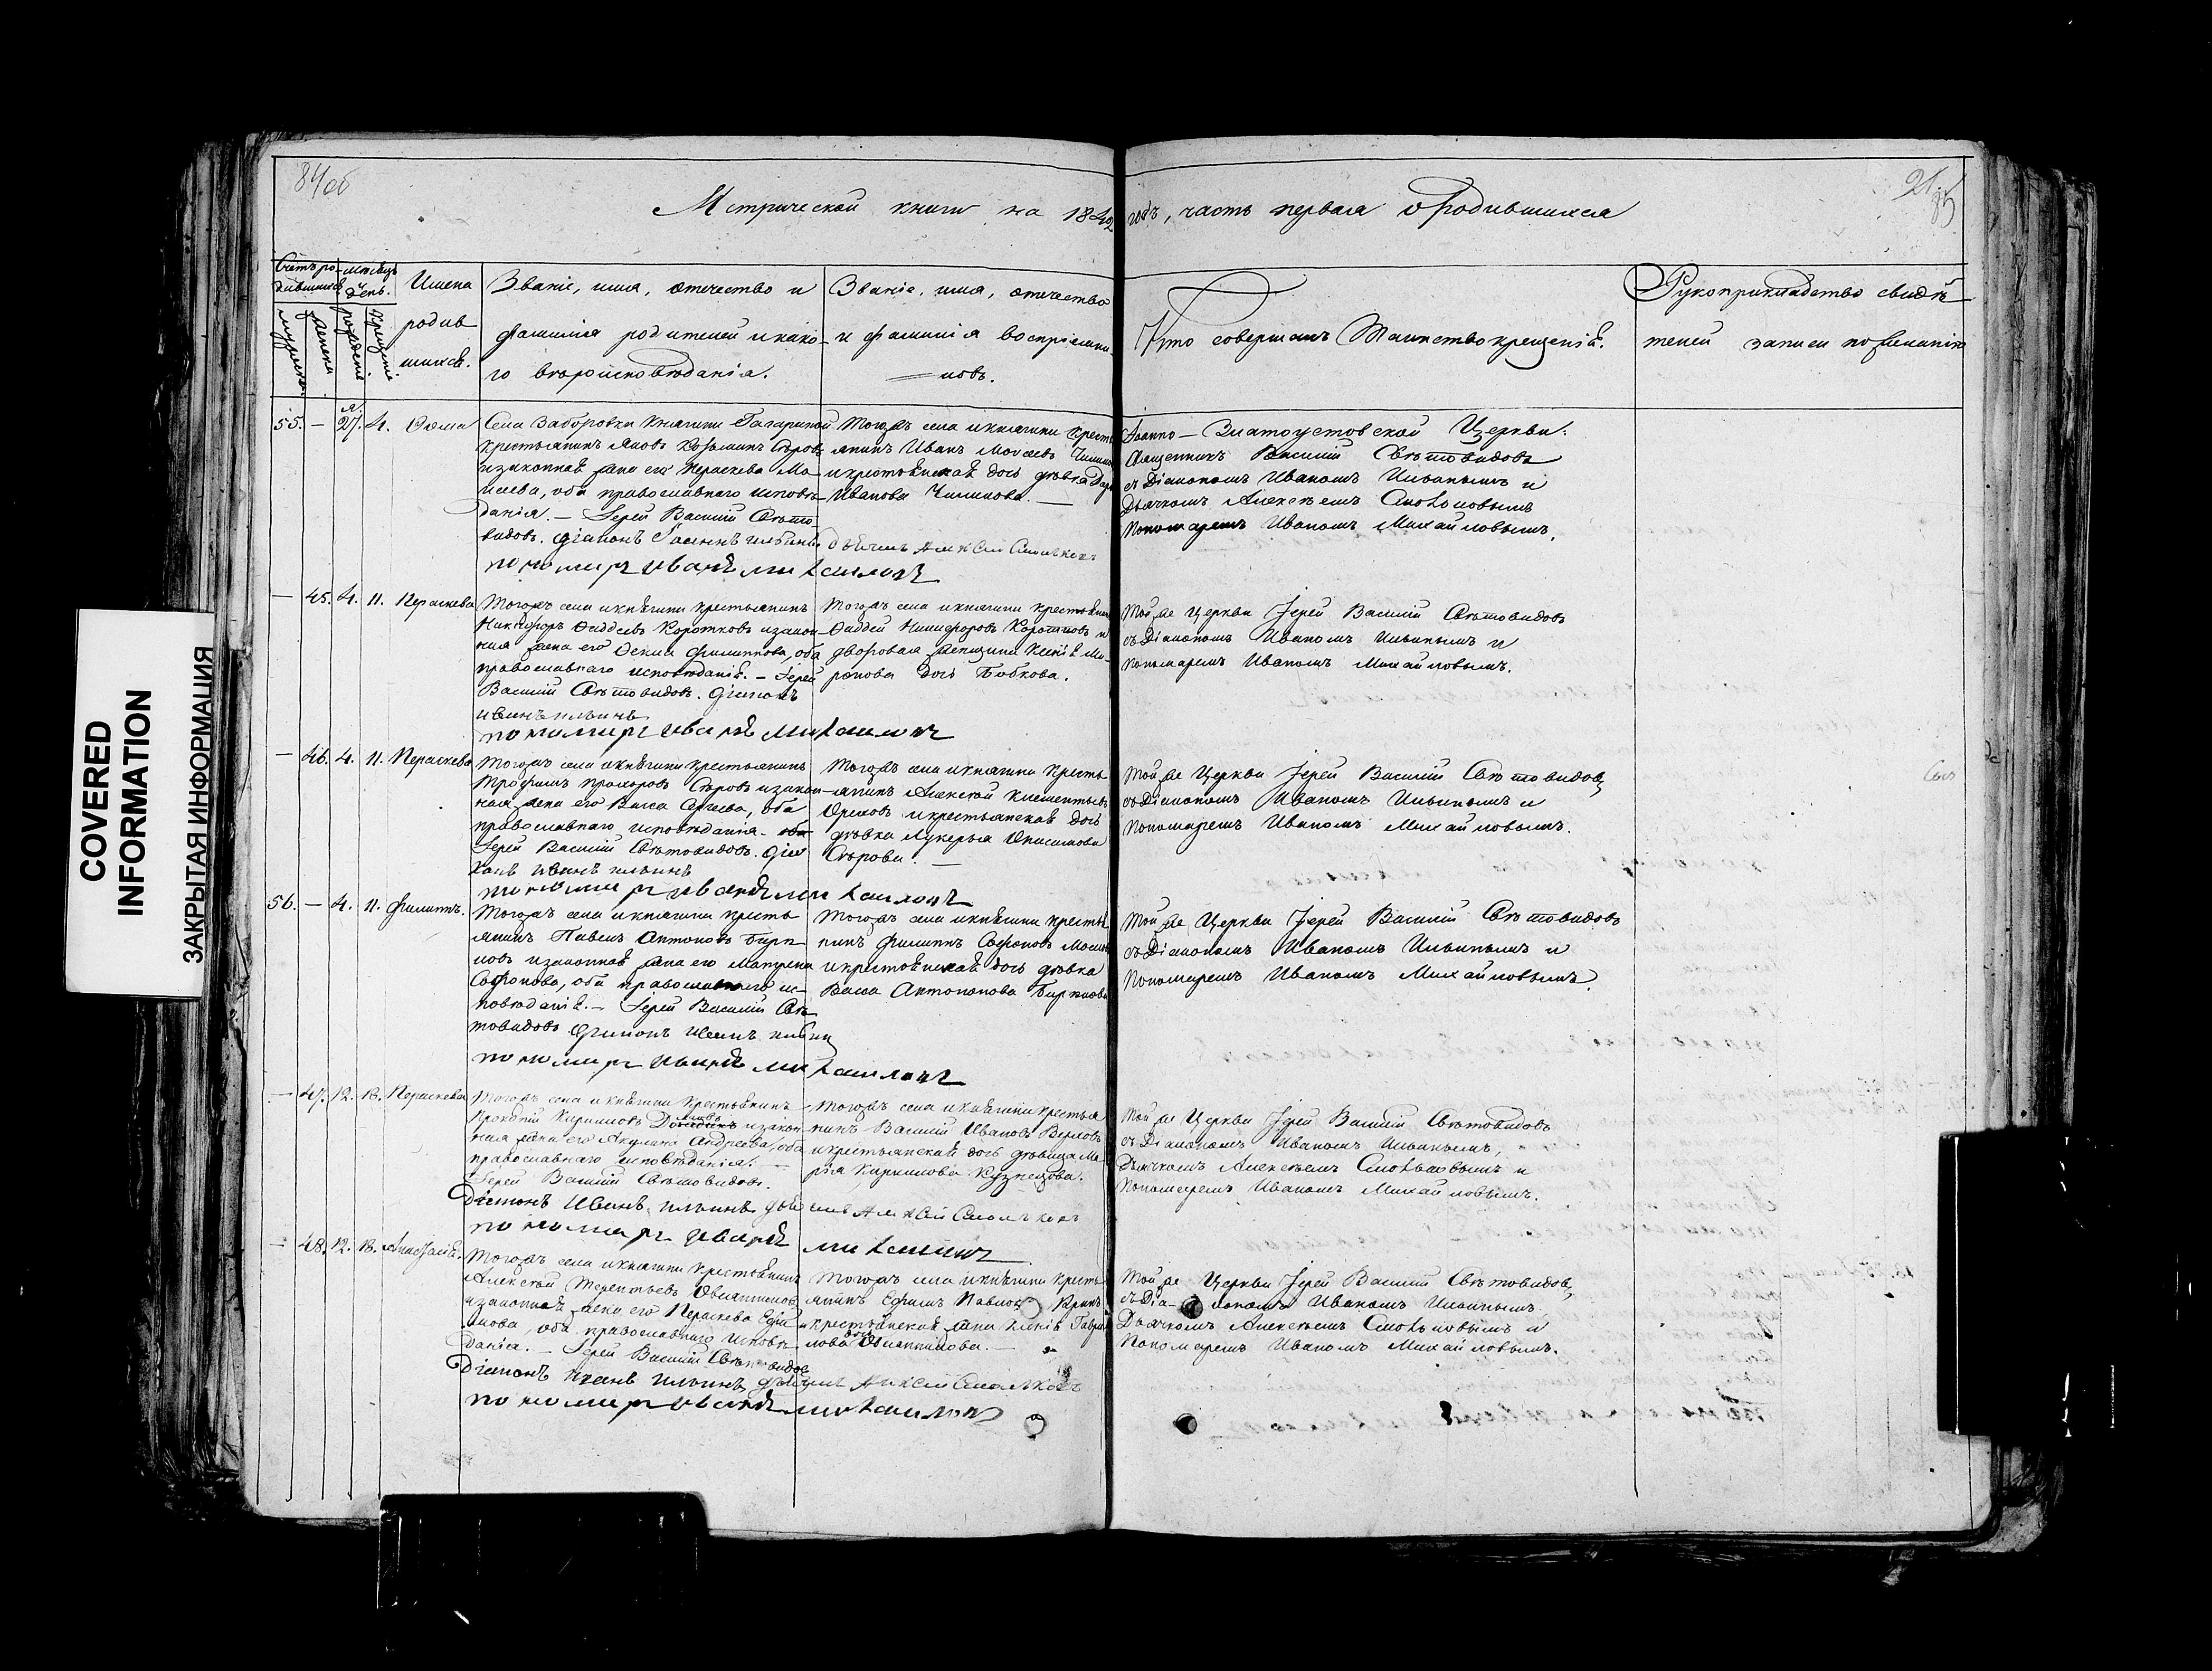 84об
Метрической книги на 1842 годъ, часть первая о Родившихся
21
85
Счетъ ро-
дившихся
мѣсяцъ
и день.
мужеска
женска
рожденіе
крещеніе
Имена
родив
шихся.
Званіе, имя, отечество и
фамилія родителей и како-
го вѣроисповѣданія.
Званіе, имя, отечество
и фамилія воспріемни-
ковъ.
Кто совершалъ Таинство крещенія.
Рукоприкладство свидѣ
телей записи по желанію
55. — 27. 4. Ѳома
Села Заборовки Княгини Гагариной
крестьянинъ Яковъ Козьминъ Сѣровъ
и законная жена его Параскева Мо-
исеева, оба православнаго исповѣ-
данія. — Іерей Василій Свѣто-
видовъ. діаконъ Іоаннъ ильинъ
дьячекъ Алексей Смольковъ
пономарь иванъ михаиловъ
Тогожъ села и княгини кресть
янинъ Иванъ Моисеевъ
и крестьянская дочь дѣвка
Иванова
Іоанно-Златоустовской Церкви:
Священникъ Василій Свѣтовидовъ
съ Діакономъ Иваномъ Ильинымъ и
Дьячкомъ Алексѣемъ Смольковымъ
Пономаремъ Иваномъ Михайловымъ.
— 45. 4. 11. Параскева
Тогожъ села и княгини крестьянинъ
Никифоръ Ѳаддеевъ Коротковъ и закон-
ная жена его Ксенія Филиппова, оба
православнаго исповѣданія. — Іерей
Василій Свѣтовидовъ. діаконъ
иванъ ильинъ
пономарь иванъ михаиловъ
Тогожъ села и княгини крестьянинъ
Ѳаддей Никифоровъ Коротковъ и
дворовая женщина Ксенія Ми-
ронова дочь Бобкова.
Той же Церкви Іерей Василій Свѣтовидовъ
съ Діакономъ Иваномъ Ильинымъ и
Пономаремъ Иваномъ Михайловымъ.
— 46. 4. 11. Параскева
Тогожъ села и княгини крестьянинъ
Трофимъ Прохоровъ Сѣровъ и закон-
ная жена его Васса Сергеева, оба
православнаго исповѣданія. оба
Іерей Василій Свѣтовидовъ. діа
конъ иванъ ильинъ
пономарь иванъ михаиловъ
Тогожъ села и княгини кресть
янинъ Алексѣй Клементьевъ
Орловъ и крестьянская дочь
дѣвка Лукерья Онисимова
Сѣрова. —
Той же Церкви Іерей Василій Свѣтовидовъ
съ Діакономъ Иваномъ Ильинымъ и
Пономаремъ Иваномъ Михайловымъ.
56. — 4. 11. Филиппъ.
Тогожъ села и княгини кресть
янинъ Павелъ Антоновъ Бирю
ковъ и законная жена его Матрена
Софонова, оба православнаго ис-
повѣданія. — Іерей Василій Свѣ
товидовъ. діаконъ иванъ ильинъ
пономарь иванъ михаиловъ
Тогожъ села и княгини крестья
нинъ Филиппъ Софоновъ
и крестьянская дочь дѣвка
Васса Антонова Бирюкова
Той же Церкви Іерей Василій Свѣтовидовъ
съ Діакономъ Иваномъ Ильинымъ и
Пономаремъ Иваномъ Михайловымъ.
— 47. 12. 18. Параскева
Тогожъ села и княгини крестьянинъ
Прокопій Кириловъ и закон
ная жена его Акулина Андреева, оба
православнаго исповѣданія. —
Іерей Василій Свѣтовидовъ.
Діаконъ Иванъ ильинъ дьячекъ Алексей Смольковъ
пономарь иванъ михаиловъ
Тогожъ села и княгини крестья
нинъ Василій Ивановъ
и крестьянская дочь дѣвица Ма-
рія Кирилова Кузнецова.
Той же Церкви Іерей Василій Свѣтовидовъ
съ Діакономъ Иваномъ Ильинымъ,
Дьячкомъ Алексѣемъ Смольковымъ и
Пономаремъ Иваномъ Михайловымъ.
— 48. 12. 18. Анастасія.
Тогожъ села и княгини крестьянинъ
Алексѣй Терентьевъ Овсянниковъ
и законная жена его Параскева Ефи
мова, оба православнаго исповѣ-
данія. — Іерей Василій Свѣтовидовъ
Діаконъ Иванъ ильинъ дьячекъ Алексей Смольковъ
пономарь иванъ михаиловъ
Тогожъ села и княгини кресть
янинъ Ефимъ Павловъ
и крестьянская жена Ксенія Гаври
лова дочь Овсянникова. —
Той же Церкви Іерей Василій Свѣтовидовъ
съ Діакономъ Иваномъ Ильинымъ
Дьячкомъ Алексѣемъ Смольковымъ и
Пономаремъ Иваномъ Михайловымъ.
COVERED
INFORMATION
ЗАКРЫТАЯ ИНФОРМАЦИЯ